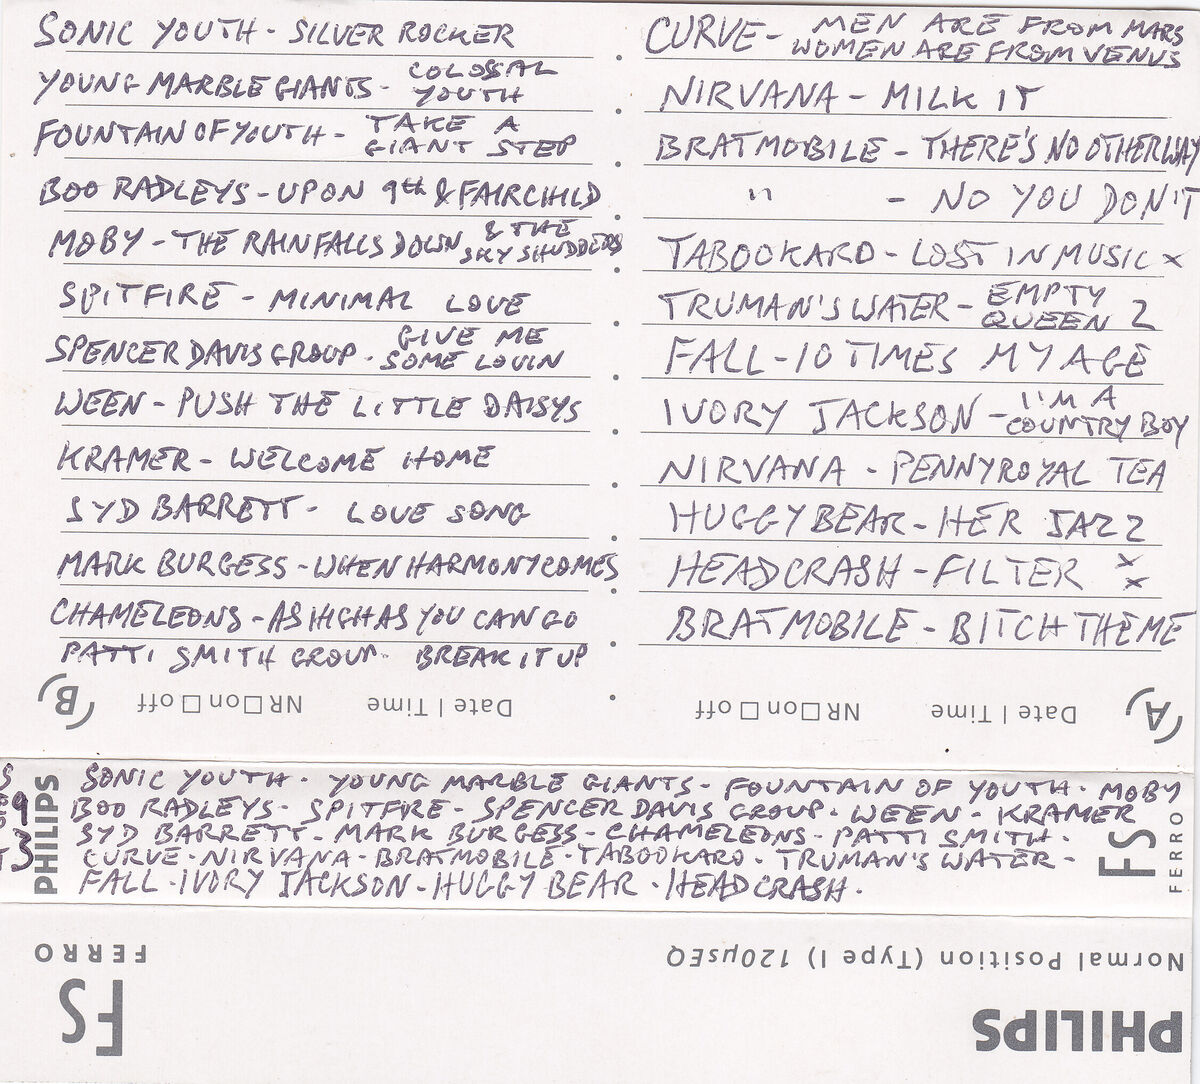 SONIC YOUTH - SILVER ROCKER
YOUNG MARBLE GIANTS - COLOSSAL YOUTH
FOUNTAIN OF YOUTH - TAKE A GIANT STEP
BOO RADLEYS - UPON 9th & FAIRCHILD
MOBY - THE RAIN FALLS DOWN & THE SKY SHUDDERS
SPITFIRE - MINIMAL LOVE
SPENCER DAVIS GROUP - GIVE ME SOME LOVIN
WEEN - PUSH THE LITTLE DAISYS
KRAMER - WELCOME HOME
SYD BARRETT - LOVE SONG
MARK BURGESS - WHEN HARMONY COMES
CHAMELEONS - AS HIGH AS YOU CAN GO
PATTI SMITH GROUP - BREAK IT UP
B NR □ on □ off Date | Time
CURVE - MEN ARE FROM MARS WOMEN ARE FROM VENUS
NIRVANA - MILK IT
BRATMOBILE - THERE'S NO OTHER WAY
" - NO YOU DON'T
TABOOKARD - LOST IN MUSIC x
TRUMAN'S WATER - EMPTY QUEEN 2
FALL - 10 TIMES MY AGE
IVORY JACKSON - I'M A COUNTRY BOY
NIRVANA - PENNYROYAL TEA
HUGGY BEAR - HER JAZZ
HEADCRASH - FILTER x x
BRATMOBILE - BITCH THEME
A NR □ on □ off Date | Time
PHILIPS
SONIC YOUTH - YOUNG MARBLE GIANTS - FOUNTAIN OF YOUTH - MOBY
BOO RADLEYS - SPITFIRE - SPENCER DAVIS GROUP - WEEN - KRAMER
SYD BARRETT - MARK BURGESS - CHAMELEONS - PATTI SMITH -
CURVE - NIRVANA - BRATMOBILE - TABOOKARD - TRUMAN'S WATER -
FALL - IVORY JACKSON - HUGGY BEAR - HEADCRASH.
FS FERRO
FS FERRO
Normal Position (Type I) 120µsEQ
PHILIPS